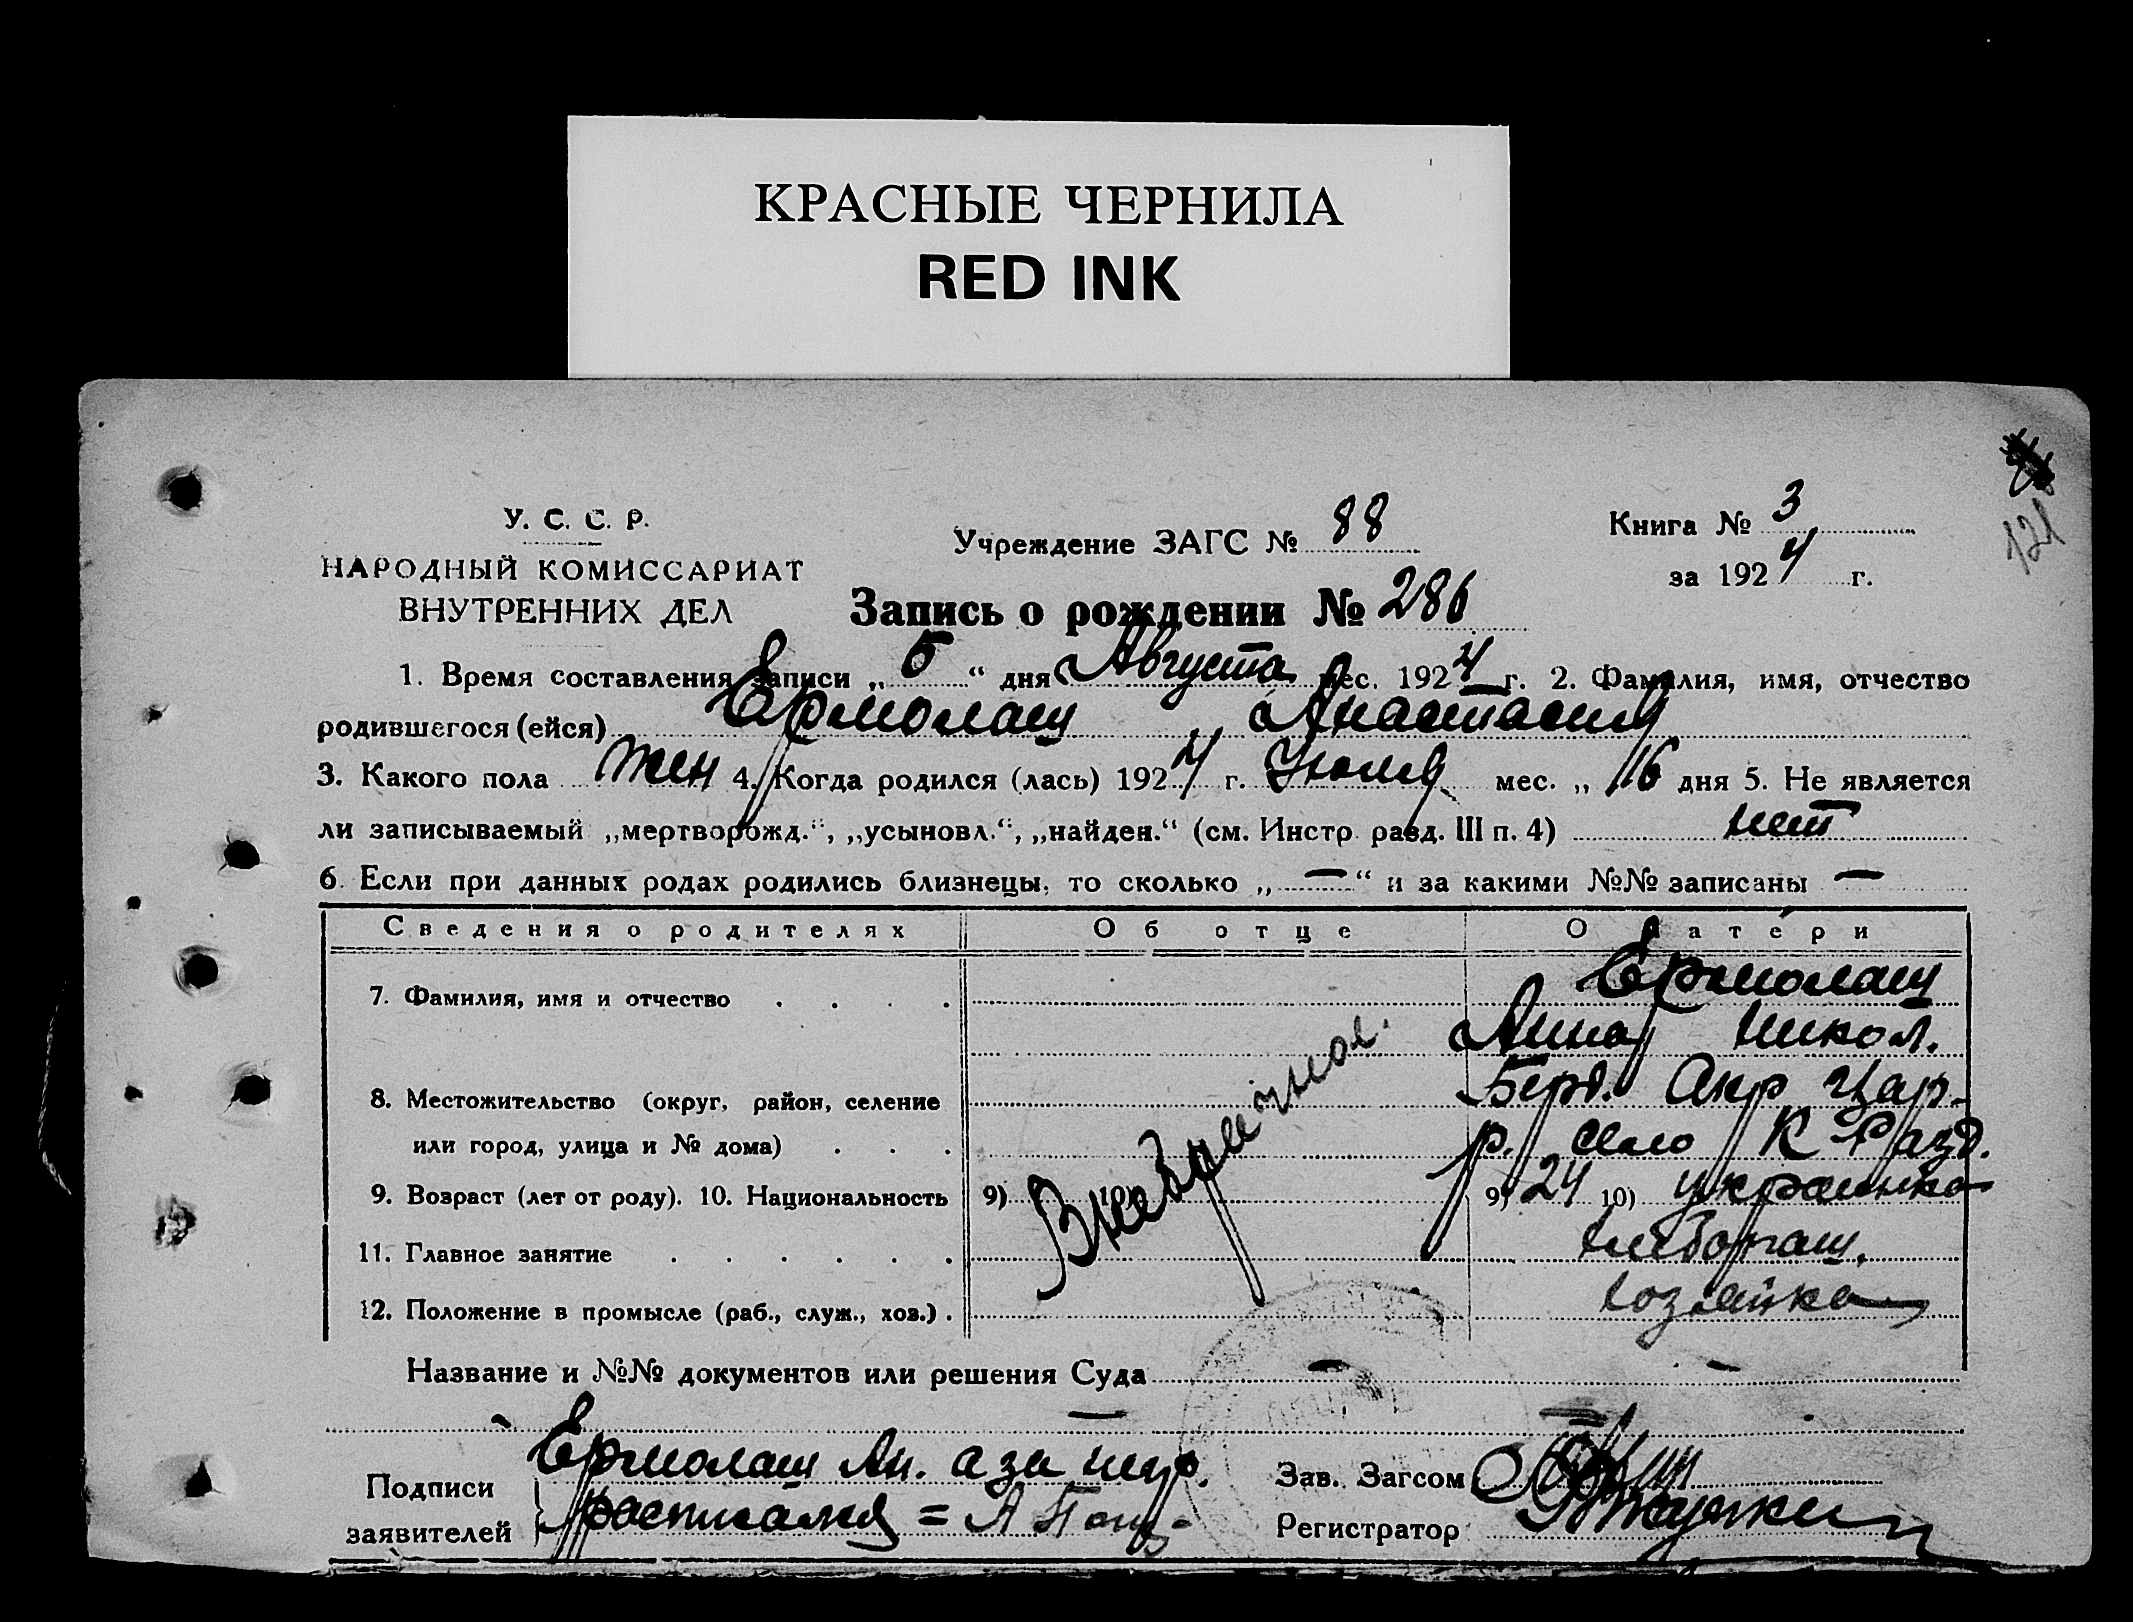 КРАСНЫЕ ЧЕРНИЛА
RED INK
121
У. С. С. Р.
НАРОДНЫЙ КОМИССАРИАТ
ВНУТРЕННИХ ДЕЛ
Учреждение ЗАГС № 88
Книга № 3
за 1924 г.
Запись о рождении № 286
1. Время составления записи „5“ дня Августа мес. 1924 г. 2. Фамилия, имя, отчество
родившегося (ейся) Ермолаш Анастасия
3. Какого пола жен 4. Когда родился (лась) 1924 г. Июля мес. „16 дня 5. Не является
ли записываемый „мертворожд.“, „усыновл.“, „найден.“ (см. Инстр. разд. III п. 4) нет
6. Если при данных родах родились близнецы, то сколько „—“ и за какими №№ записаны —
Сведения о родителях Об отце О матери
7. Фамилия, имя и отчество . . . . Ермолаш
Анна Никол.
8. Местожительство (округ, район, селение Берд. Окр Цар-
или город, улица и № дома) . . . р. село К Разд.
9. Возраст (лет от роду). 10. Национальность 9) 10) 9) 24 10) украинка
Внебрачная.
11. Главное занятие . . . . . .
12. Положение в промысле (раб., служ., хоз.) . хозяйка
Название и №№ документов или решения Суда — —
—
Подписи
заявителей
Ермолаш Ан. а за негр.
росписался = А
Зав. Загсом
Регистратор